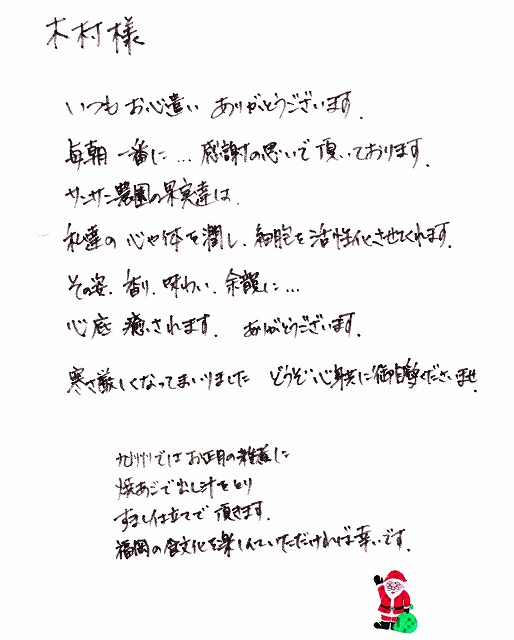 木村様
いつもお心遣い ありがとうございます.
毎朝 一番に… 感謝の思いで頂いております.
サンサン農園の果実達は.
私達の 心や体を潤し、細胞を活性化させてくれます.
その姿. 香り. 味わい. 余韻に…
心底 癒されます. ありがとうございます.
寒さ厳しくなってまいりました どうぞ心身共に御自愛くださいませ.
九州ではお正月のお雑煮に
焼あごで出し汁をとり
すまし仕立てで 頂きます.
福岡の食文化を楽しんでいただければ幸いです.